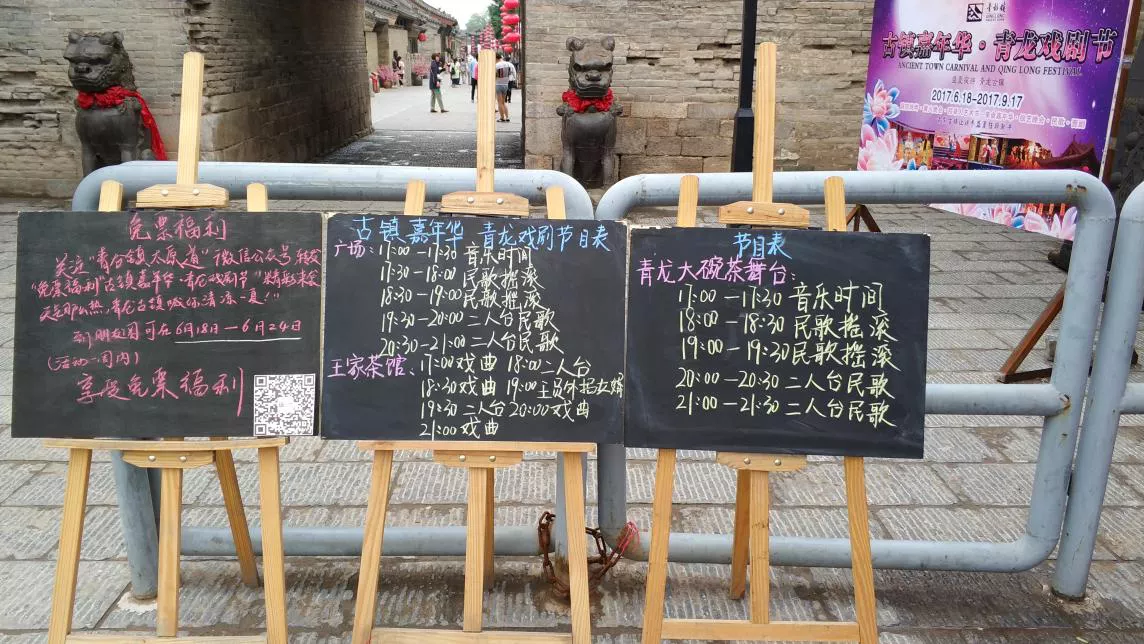 免票福利
关注"青台镇太原道"微信公众号 转发
"免票福利 古镇嘉年华·青龙戏剧节"精彩来袭
天这那么热,青龙古镇喊你清凉一夏!"
到朋友圈可在6月18日—6月24日
(活动一周内)
享受免票福利
古镇嘉年华 青龙戏剧节目表
广场:17:00—17:30 音乐时间
17:30—18:00 民歌摇滚
18:30—19:00 民歌摇滚
19:30—20:00 二人台民歌
20:30—21:00 二人台民歌
王家茶馆:17:00戏曲 18:00二人台
18:30戏曲 19:00王员外招女婿
19:30二人台 20:00戏曲
21:00戏曲
节目表
青龙大碗茶舞台:
17:00—17:30 音乐时间
18:00—18:30 民歌摇滚
19:00—19:30 民歌摇滚
20:00—20:30 二人台民歌
21:00—21:30 二人台民歌
青龙镇
QINGLONG
古镇嘉年华·青龙戏剧节
ANCIENT TOWN CARNIVAL AND QING LONG FESTIVAL
2017.6.18-2017.9.17